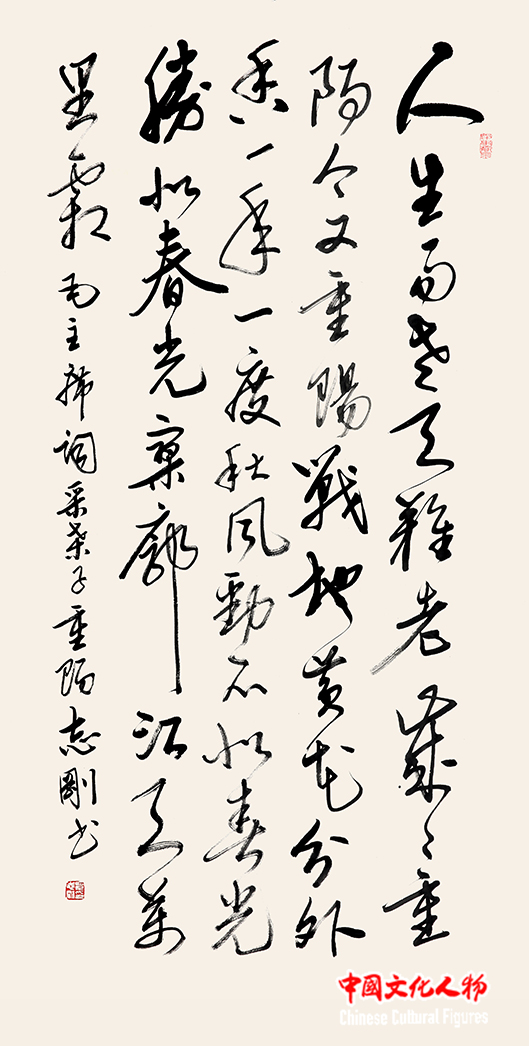 人生易老天難老歲〻重
陽今又重陽戰地黃花分外
香一年一度秋風勁不似春光
勝似春光寥廓江天萬
里霜 毛主席詞采桑子重陽志剛书
中國文化人物
Chinese Cultural Figures